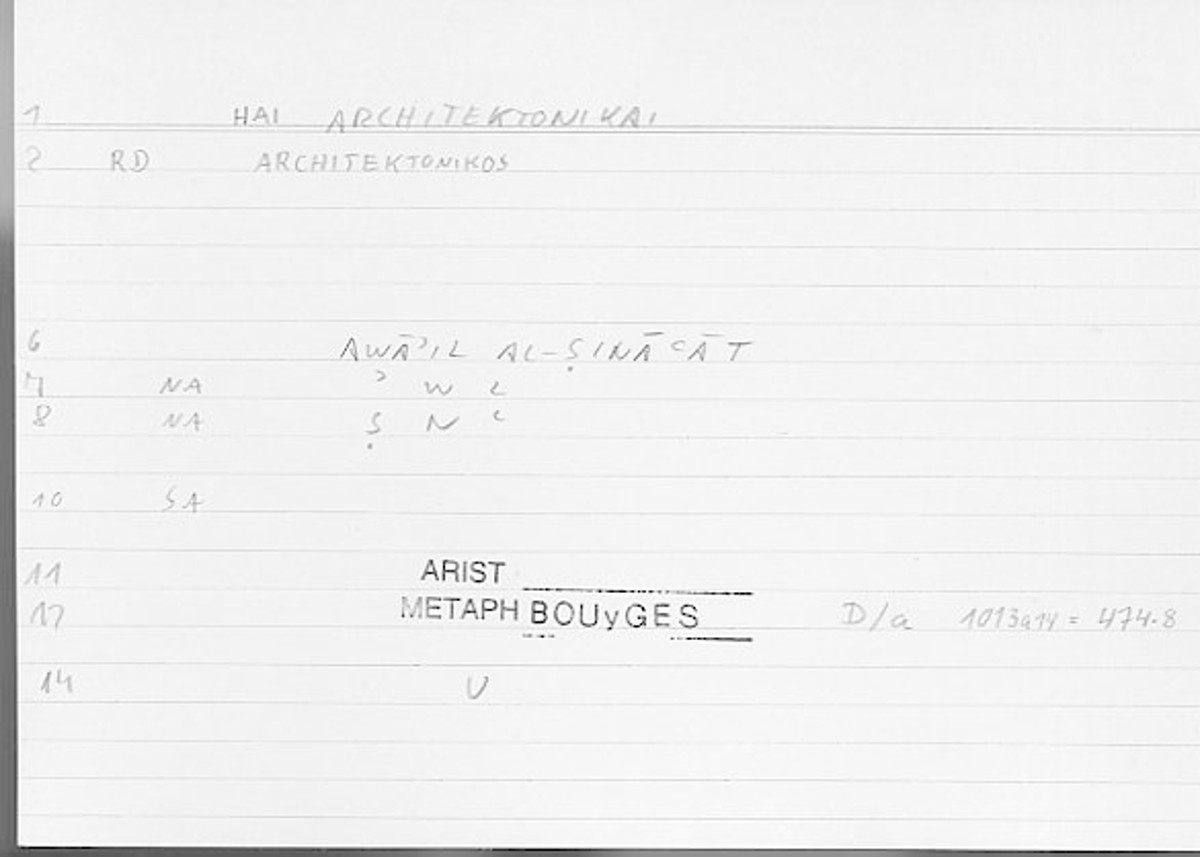 1 HAI ARCHITEKTONIKAI
2 RD ARCHITEKTONIKOS
6 AWĀʾIL AL-ṢINĀʿĀT
7 NA ʾ W L
8 NA Ṣ N ʿ
10 SA
11 ARIST
12 METAPH BOUyGES D/a 1013a14 = 474.8
14 U